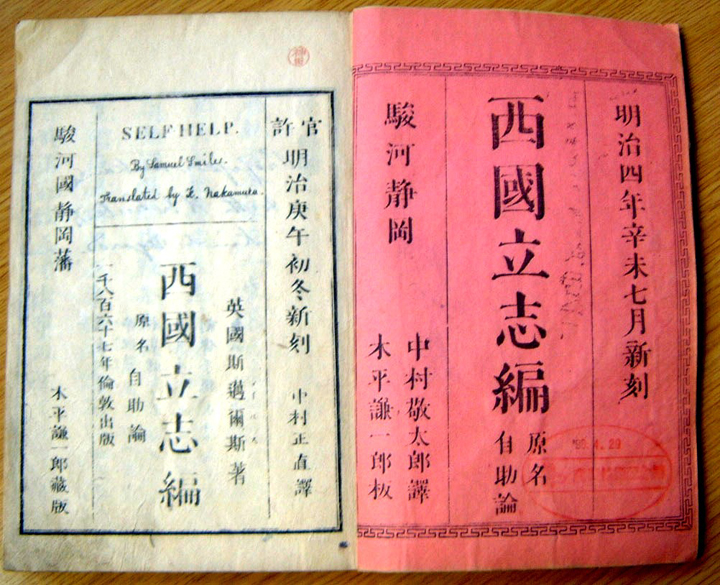 明治四年辛未七月新刻
西國立志編
原名
自助論
中村敬太郎譯
駿河静岡
木平謙一郎板
官許
明治庚午初冬新刻
中村正直譯
SELF-HELP.
By Samuel Smiles.
Translated by K. Nakamura.
英國斯邁爾斯著
西國立志編
原名自助論
一千八百六十七年倫敦出版
駿河國静岡藩
木平謙一郎藏版